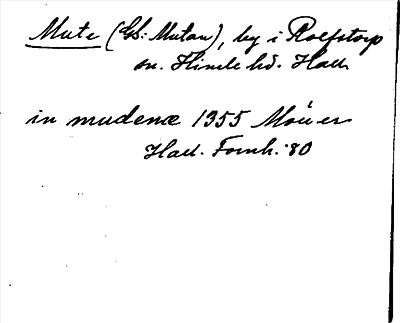 Mute (Gs: Mutan), by i Rolfstorp
sn. Himle hd. Hall.
in mudenæ 1355 Möller
Hall. Fornh. 80